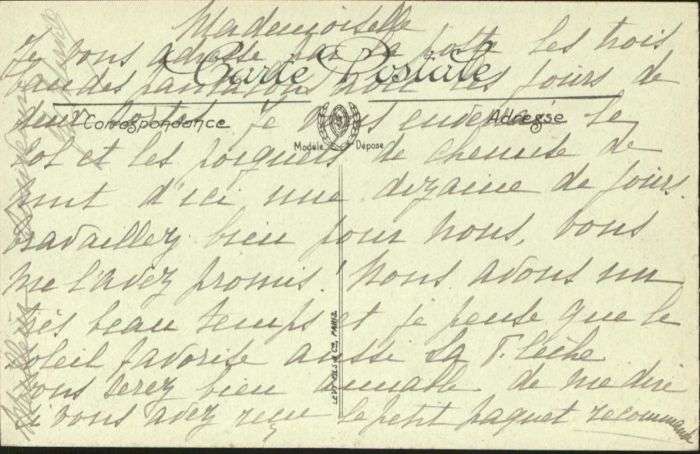 Mademoiselle
Je vous adresse par la poste les trois
Carte Postale
bandes pantalons avec les jours de
deux je vous enverrai le
Correspondance
Adresse
Modèle Déposé
col et les poignets de chemise de
nuit d'ici une dizaine de jours.
travaillez bien pour nous, vous
me l'avez promis! Nous avons un
très beau temps et je pense que le
soleil favorise aussi La Flèche
Vous serez bien aimable de me dire
si vous avez reçu le petit paquet recommandé
LEVY FILS & Cie, PARIS